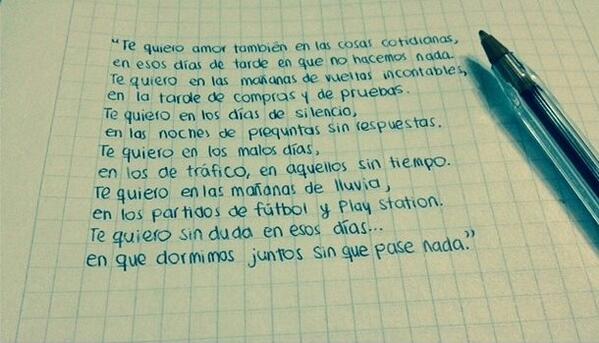 "Te quiero amor también en las cosas cotidianas,
en esos días de tarde en que no hacemos nada.
Te quiero en las mañanas de vueltas incontables,
en la tarde de compras y de pruebas.
Te quiero en los días de silencio,
en las noches de preguntas sin respuestas.
Te quiero en los malos días,
en los de tráfico, en aquellos sin tiempo.
Te quiero en las mañanas de lluvia,
en los partidos de fútbol y Play Station.
Te quiero sin duda en esos días...
en que dormimos juntos sin que pase nada."